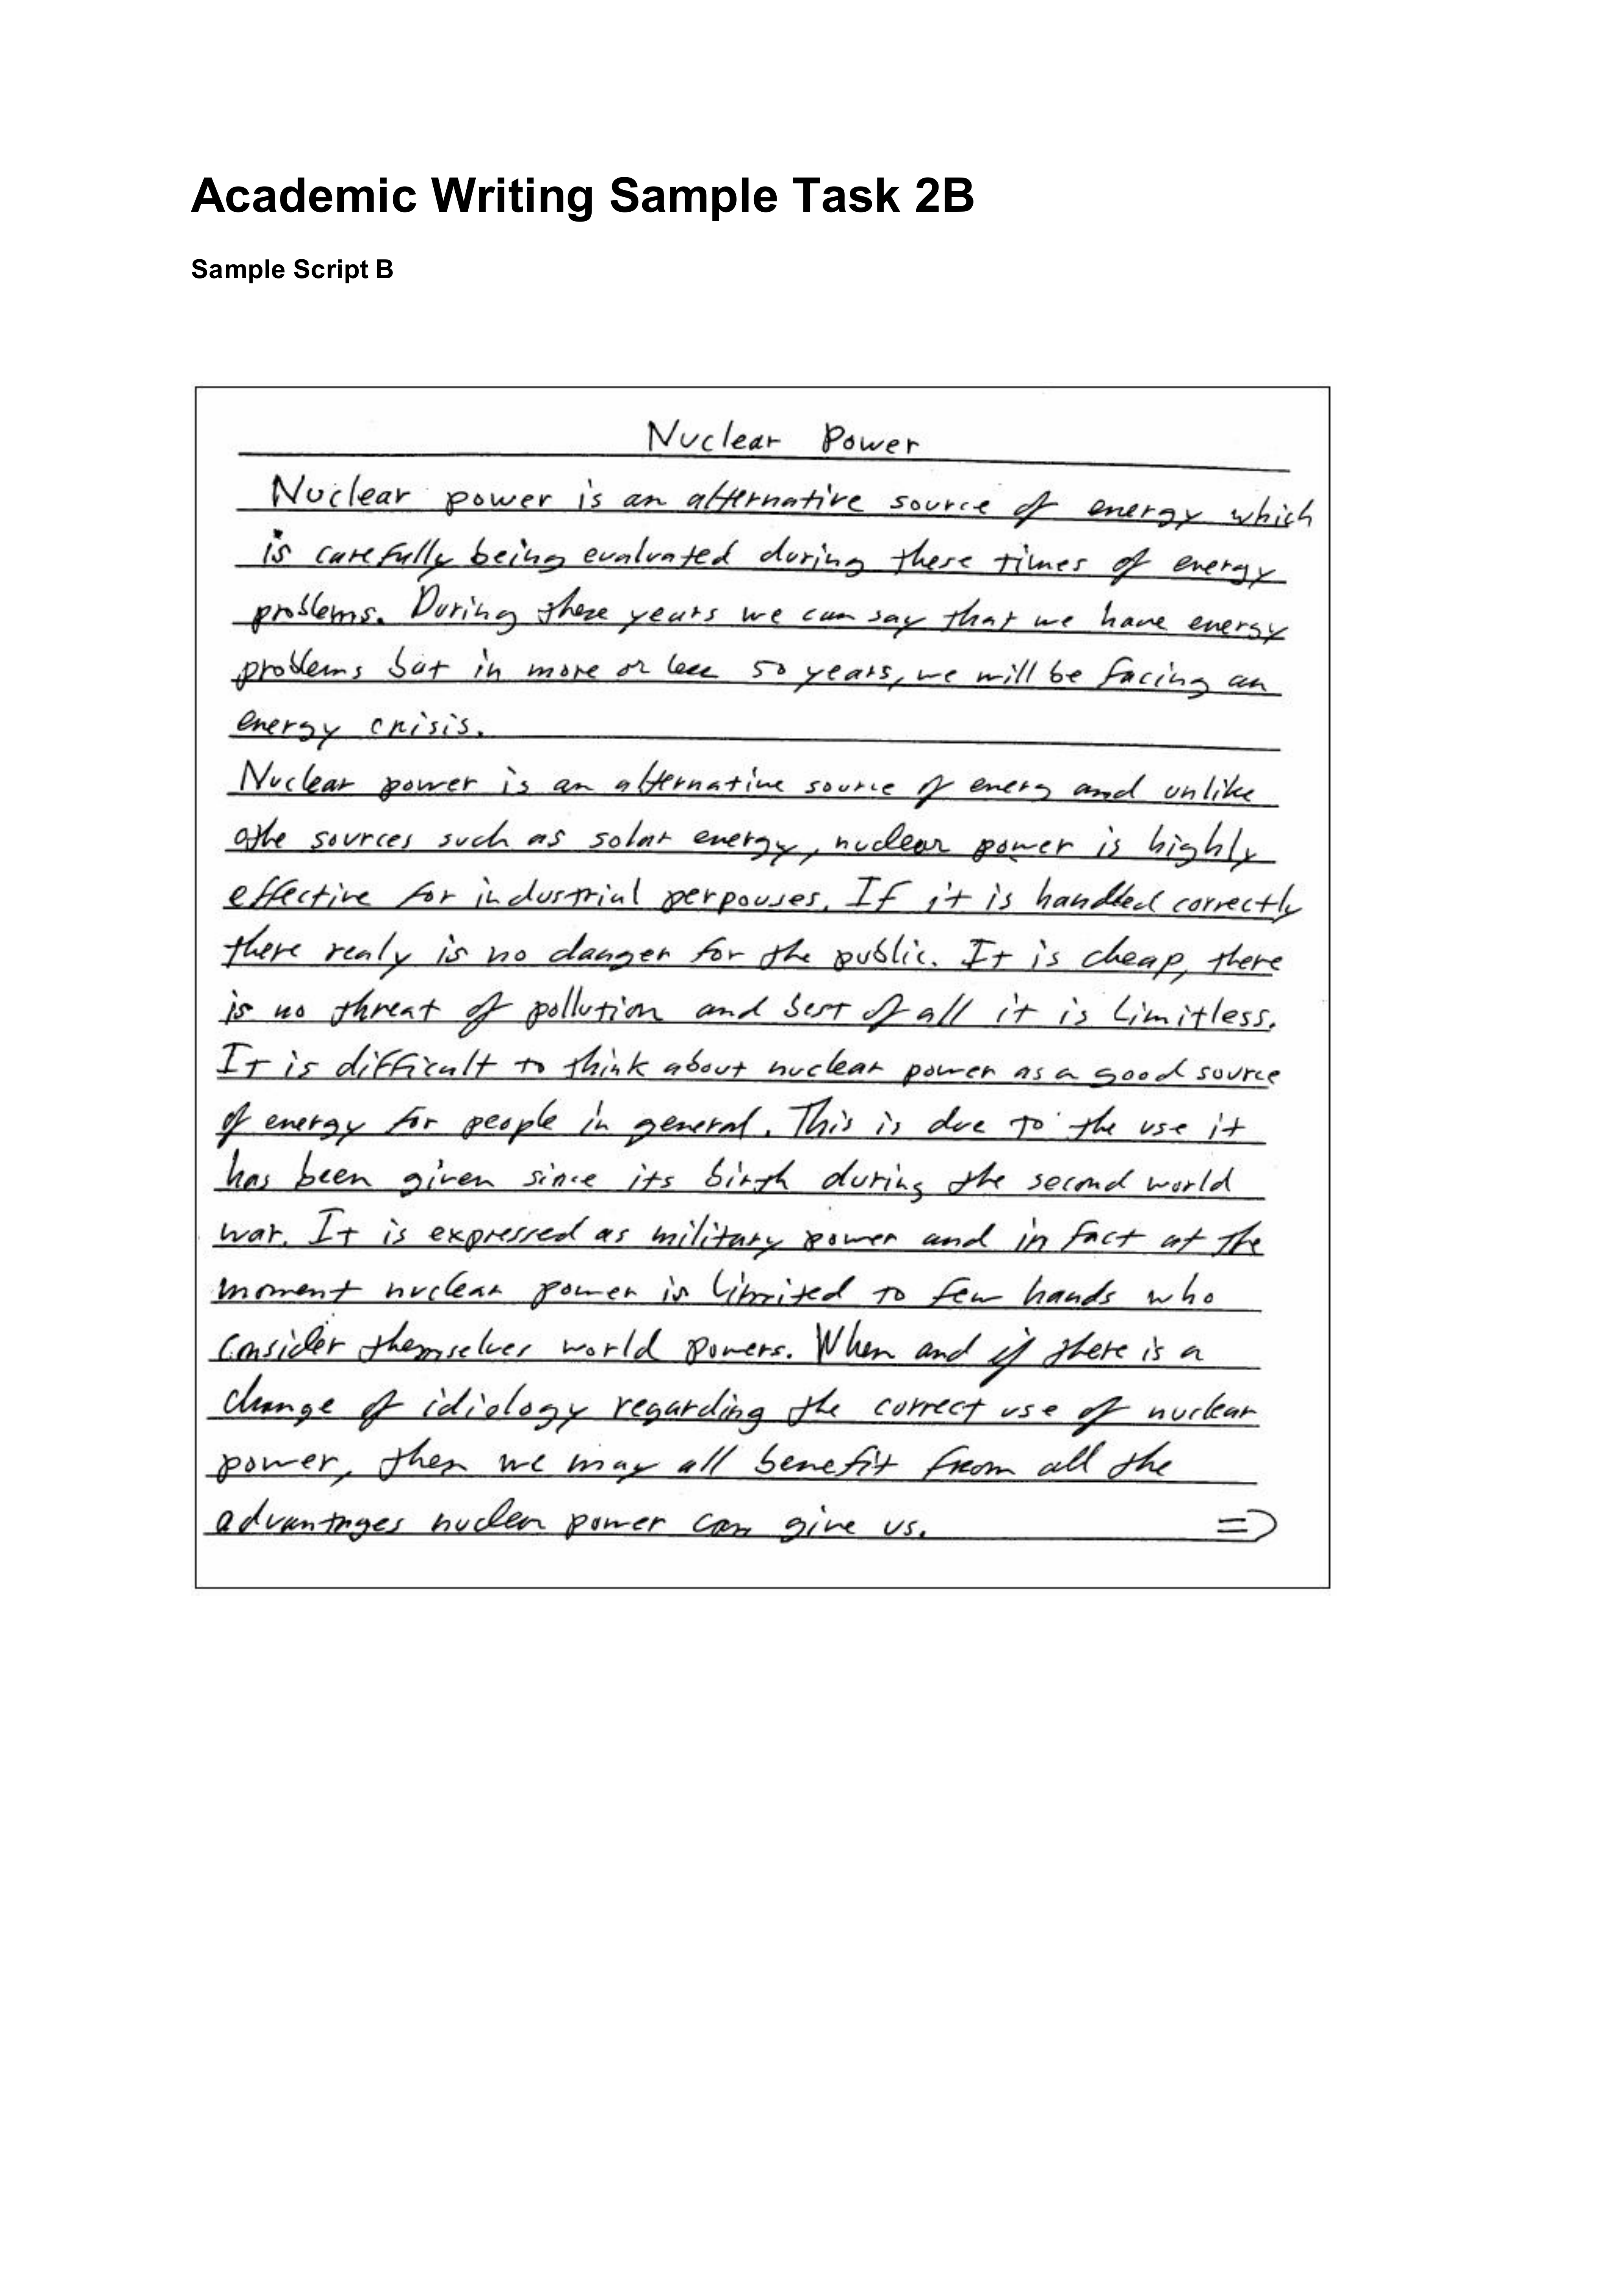 Academic Writing Sample Task 2B
Sample Script B
Nuclear Power
Nuclear power is an alternative source of energy which
is carefully being evaluated during these times of energy
problems. During these years we can say that we have energy
problems but in more or less 50 years, we will be facing an
energy crisis.
Nuclear power is an alternative source of energy and unlike
othe sources such as solar energy, nuclear power is highly
effective for industrial perpouses. If it is handled correctly
there realy is no danger for the public. It is cheap, there
is no threat of pollution and best of all it is limitless.
It is difficult to think about nuclear power as a good source
of energy for people in general. This is due to the use it
has been given since its birth during the second world
war. It is expressed as military power and in fact at the
moment nuclear power is limited to few hands who
consider themselves world powers. When and if there is a
change of idiology regarding the correct use of nuclear
power, then we may all benefit from all the
advantages nuclear power can give us. =>